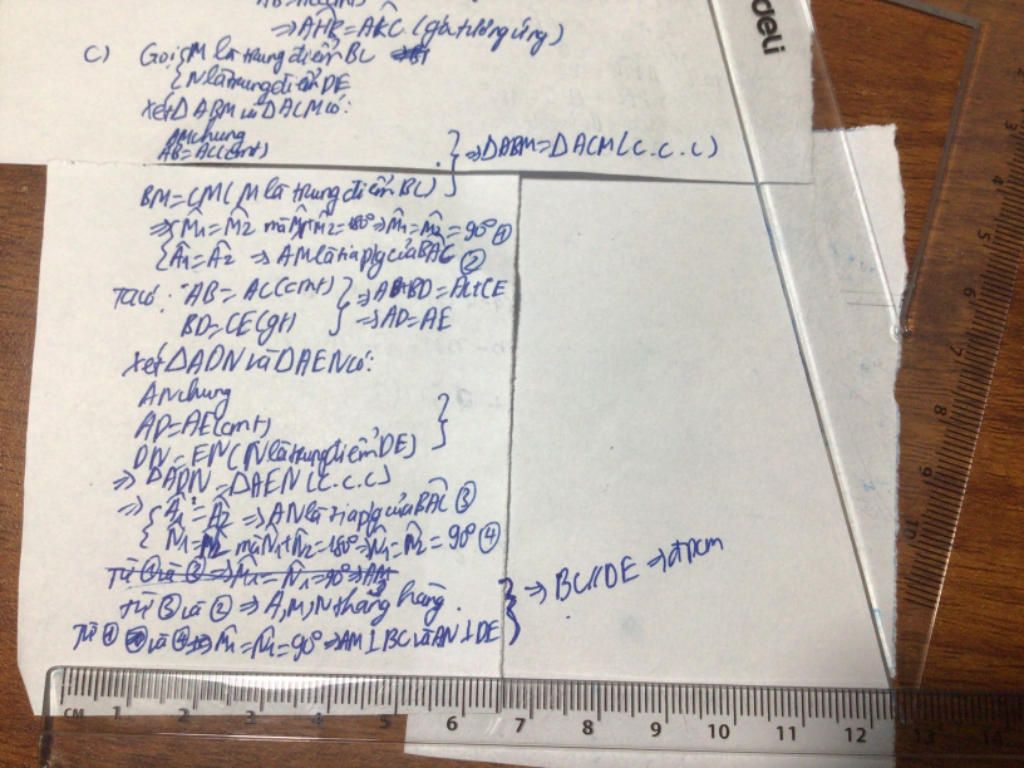 ⇒ AĤB = AK̂C (góc tương ứng)
c) Gọi { M là trung điểm BC
{ N là trung điểm DE
Xét ΔABM và ΔACM có:
AM chung
AB = AC (cmt)
} ⇒ ΔABM = ΔACM (c.c.c)
BM = CM (M là trung điểm BC)
⇒ { M̂1 = M̂2 mà M̂1 + M̂2 = 180° ⇒ M̂1 = M̂2 = 90° ①
{ Â1 = Â2 ⇒ AM là tia p/g của BÂC ②
Ta có: AB = AC (cmt) } ⇒ AB+BD = AC+CE
BD = CE (gt) } ⇒ AD = AE
Xét ΔADN và ΔAEN có:
AN chung
AD = AE (cmt)
DN = EN (N là trung điểm DE)
⇒ ΔADN = ΔAEN (c.c.c)
⇒ { Â1 = Â2 ⇒ AN là tia p/g của BÂC ③
{ N̂1 = N̂2 mà N̂1 + N̂2 = 180° ⇒ N̂1 = N̂2 = 90° ④
Từ ③ và ② ⇒ A, M, N thẳng hàng.
Từ ① và ④ ⇒ M̂1 = N̂1 = 90° ⇒ AM ⊥ BC và AN ⊥ DE
} ⇒ BC // DE ⇒ đpcm
deli
3 4 5 6 7 8 9 10
CM 1 2 3 4 5 6 7 8 9 10 11 12 13 14